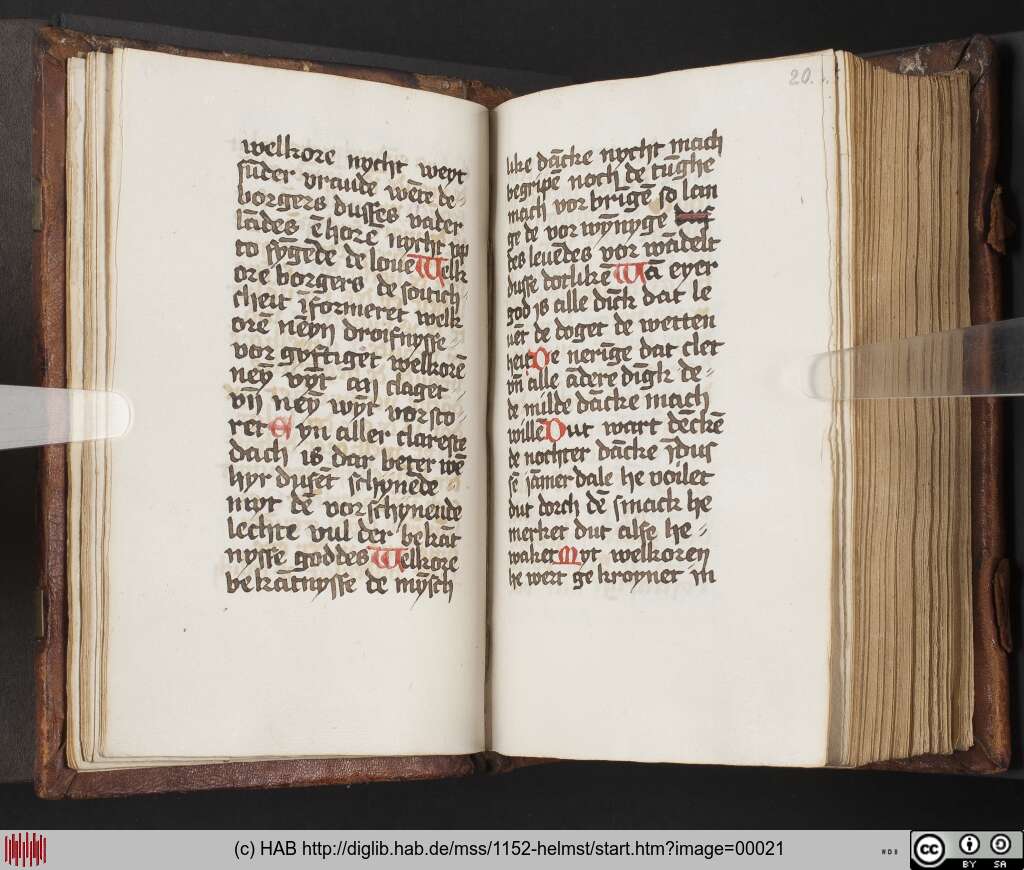 welkore nycht weyt
sūder vraude wēte de⸗
borgers dusses vader
lādes ē kore nycht up
to sygēde de loue Welk
ore borgers de soitich⸗
cheit īformeret welk
orē nēyn droifnysse⸗
vor gyftiget welkorē
neÿ vÿt an claget
vn̄ neÿ wyt vorsto⸗
ret Eyn aller clareste
dach is dar beter wē
hyr dusēt schynēde
myt dē vorschynende
lechte vul der bekāt
nysse goddes Welkore
bekātnysse de mȳsch
20.
like dācke nycht mach
begripē noch de tūghe
mach vorbrīgē so lan
ge de vor wȳnyge
des leuēdes vor wādelt
dusse dotlikē Wā eyer
god is alle dīck dat le
uēt de doget de wetten
heit De nerīge dat clet
vn̄ alle ādere dīgk de⸗
de milde dācke mach
willē Dut wart dēckē
de nochter dācke īdus
sē jāmer dale he voilet
dut dorch dē smack he
merket dut alse he⸗
waket Myt welkoren
he wert ge kroynet in
(c) HAB http://diglib.hab.de/mss/1152-helmst/start.htm?image=00021
WDB
cc BY SA